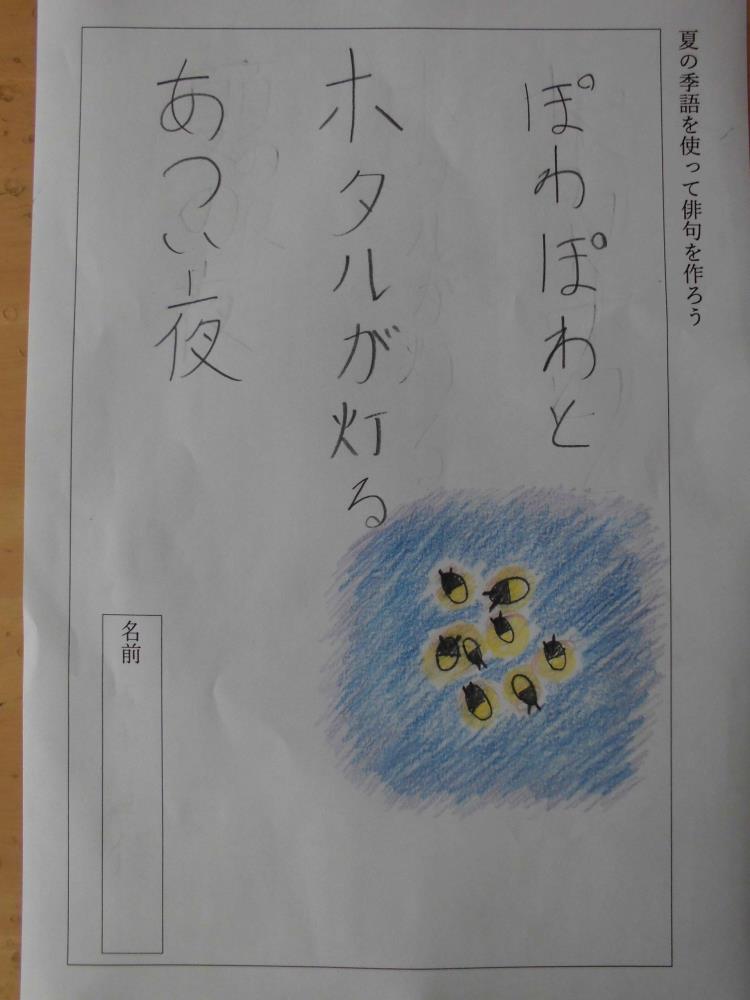 夏の季語を使って俳句を作ろう
ぽわぽわと
ホタルが灯る
あつい夜
名前